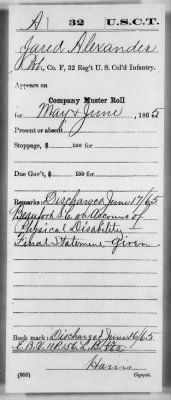 A | 32 | U.S.C.T.
Jared Alexander
Pvt., Co. F, 32 Reg't U. S. Col'd Infantry.
Appears on
Company Muster Roll
for May & June, 1865
Present or absent
Stoppage, $ 100 for
Due Gov't, $ 100 for
Remarks: Discharged June 17/65
Beaufort S.C. on Account of
Physical Disability
Final Statement Given
Book mark: Discharged June 16/65
Harris
(358) Copyist.